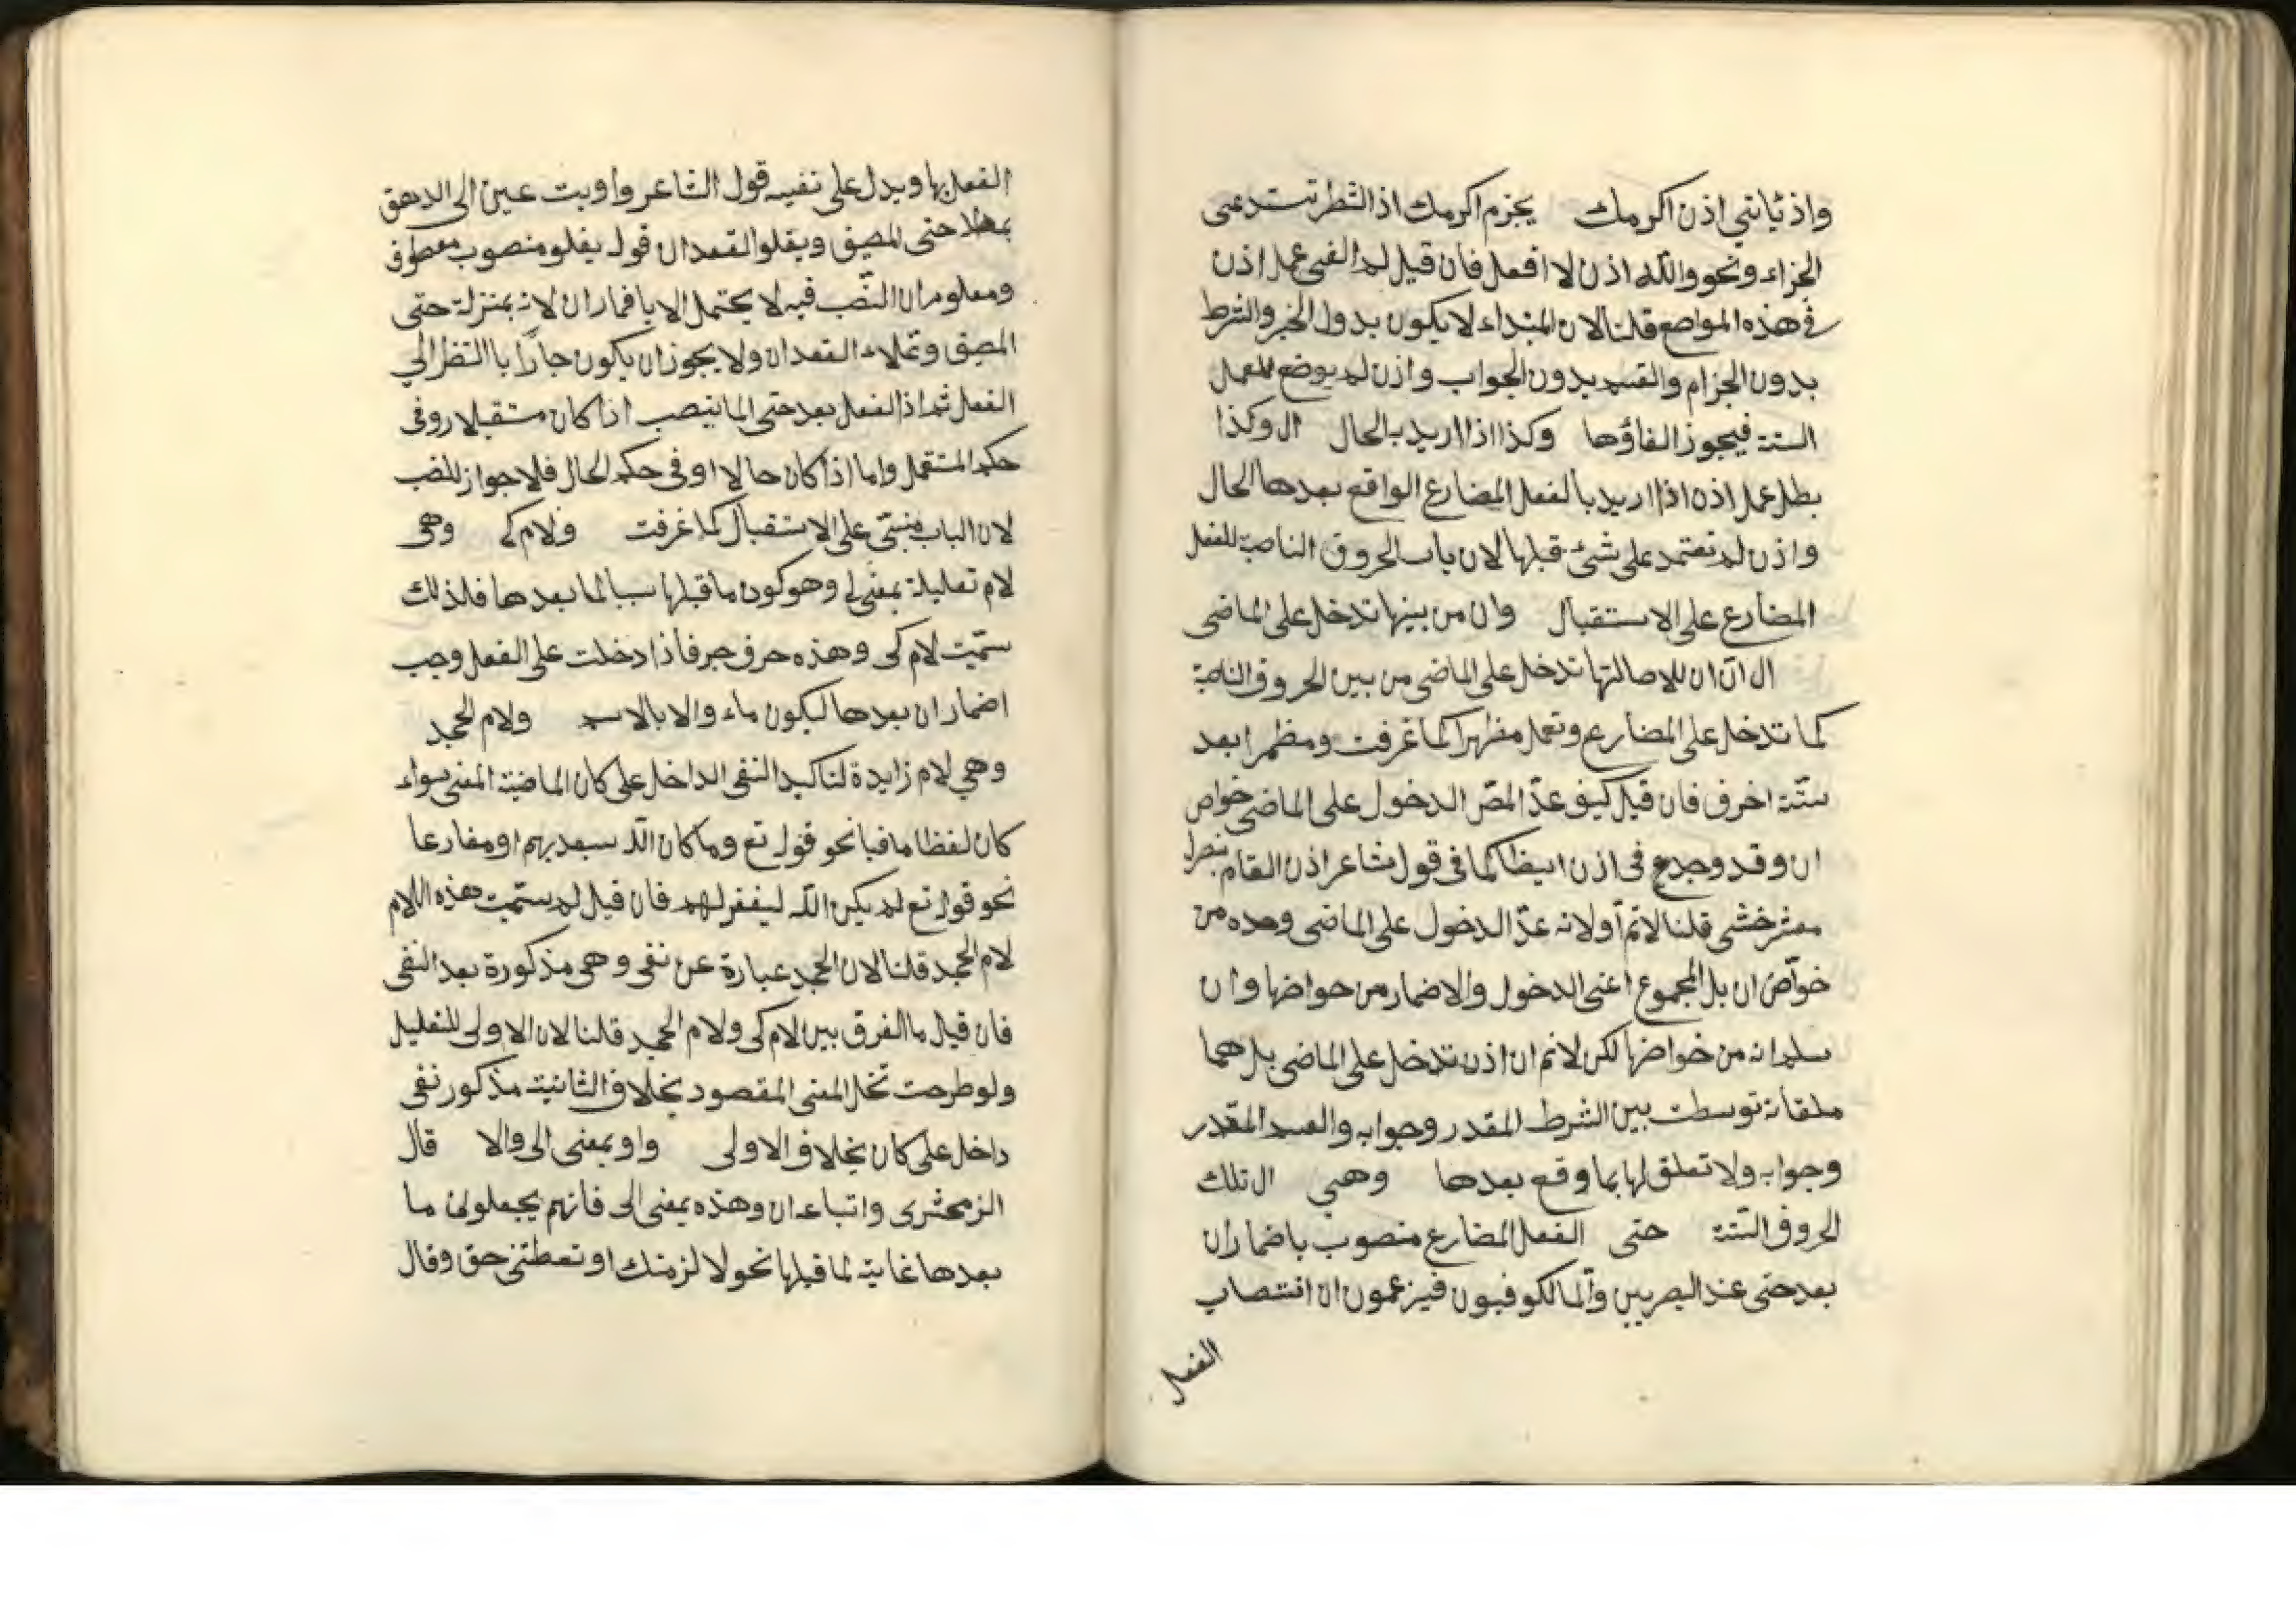 واذ ياتني اذن اكرمك يجزم اكرمك اذ الشطر تستدعى
الجزاء ونحو والله اذن لا افعل فان قيل لم الغى عمل اذن
فى هذه المواضع قلنا لان المبتداء لا يكون بدون الخبر والشرط
بدون الجزام والقسم بدون الجواب واذن لم يوضع للعمل
الستة فيجوز الفاؤها وكذا اذا اريد بالحال ال وكذا
بطل عمل اذن اذا اريد بالفعل المضارع الواقع بعدها الحال
واذن لم تعتمد على شئ قبلها لان باب الحروف الناصبة للفعل
المضارع على الاستقبال وان من بينها تدخل على الماضى
ال ان ان للاصالتها تدخل على الماضى من بين الحروف الناصبة
كما تدخل على المضارع وتعمل مظهرا كما عرفت ومظمرا بعد
ستة احرف فان قيل كيف عد المص الدخول على الماضى خواص
ان وقد وجد فى اذن ايضا كما فى قول شاعر اذن القام بنصرى
معشر خشى قلنا لانم اولا انه عد الدخول على الماضى وحده من
خواص ان بل المجموع اعنى الدخول والاضمار من خواصها وان
سلم انه من خواصها لكن لانم ان اذن تدخل على الماضى بل هما
ملقاة توسطت بين الشرط المقدر وجوابه والقسم المقدر
وجوابه ولا تعلق لها بما وقع بعدها وهي ال تلك
الحروف الستة حتى الفعل المضارع منصوب باضمار ان
بعد حتى عند البصريين واما الكوفيون فيزعمون ان انتصاب
الفعل
الفعل بها ويدل على نفيه قول الشاعر واويت عينى الى الدهق
حتى المصيق ويقلوا لقعدان قوله يغلو منصوب معطوف
ومعلوم ان النصب فيه لا يحتمل الا باضمار ان لانه بمنزلة حتى
المصيق وغلاء القعدان ولا يجوز ان يكون جارا باالنظر الى
الفعل ثم اذ الفعل بعد حتى انما ينصب اذا كان مستقبلا او فى
حكم المستقبل واما اذا كان حالا او فى حكم الحال فلا جواز للنصب
لان الباب مبنى على الاستقبال كما عرفت ولام كى وهى
لام تعليلة بمعنى لى وهو كون ما قبلها سببا لما بعدها فلذلك
سميت لام كى وهذه حرف جر فاذا دخلت على الفعل وجب
اضمار ان بعدها ليكون ماء والا بالاسم ولام الجحد
وهي لام زايدة لتاكيد النفى الداخل على كان الماضية المعنى سواء
كان لفظا ماضيا نحو قوله تع وما كان الله سيعذبهم او مضارعا
نحو قوله تع لم يكن الله ليغفر لهم فان قيل لم سميت هذه اللام
لام الجحد قلنا لان الجحد عبارة عن نفى وهى مذكورة بعد النفى
فان قيل ما الفرق بين لام كى ولام الجحد قلنا لان الاولى للتعليل
ولو طرحت تخل المعنى المقصود بخلاف الثانية مذكور نفى
داخل على كان بخلاف الاولى واو بمعنى الى والا قال
الزمحشرى واتباعه ان وهذه بمعنى الى فانهم يجعلون ما
بعدها غاية لما قبلها نحو لا لزمنك او تعطنى حق وقال